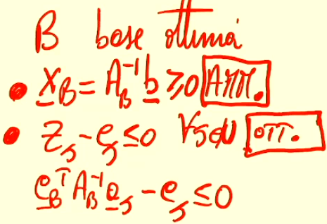 B base ottima
• x_B = A_B^{-1} b ≥ 0 AMM.
• z_j - c_j ≤ 0 ∀j∈N OTT.
c_B^T A_B^{-1} a_j - c_j ≤ 0